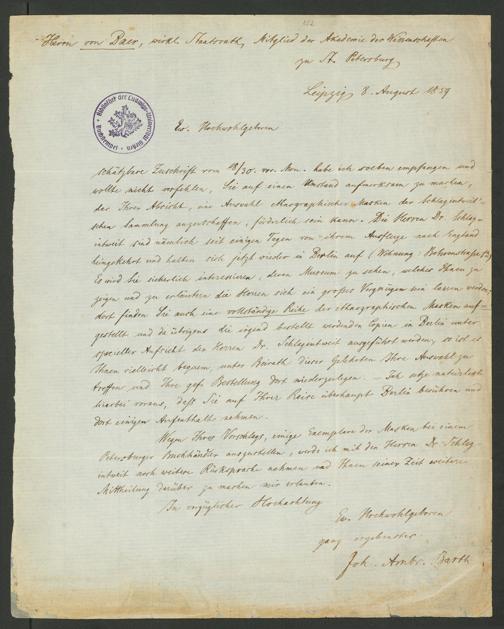 Herrn von Baer, wirkl. Staatsrath, Mitglied der Akademie der Wissenschaften
zu St. Petersburg
Leipzig 8. August 1859
Ew. Hochwohlgeboren
schätzbare Zuschrift vom 18/30. vor. Mon. habe ich soeben empfangen und
wollte nicht verfehlen, Sie auf einen Umstand aufmerksam zu machen,
der Ihrer Absicht, eine Auswahl ethnographischer Masken der Schlagintweit'
schen Sammlung anzuschaffen, förderlich sein kann. Die Herren Dr. Schlag-
intweit sind nämlich seit einigen Tagen von ihrem Ausfluge nach England
heimgekehrt und halten sich jetzt wieder in Berlin auf (Wohnung:
Es wird Sie sicherlich interessiren, deren Museum zu sehen, welches Ihnen zu
zeigen und zu erläutern die Herren sich ein großes Vergnügen sein lassen werden;
dort finden Sie auch eine vollständige Reihe der ethnographischen Masken auf-
gestellt und da übrigens die irgend bestellt werdenden Copien in Berlin unter
specieller Aufsicht der Herren Dr. Schlagintweit ausgeführt werden, so ist es
Ihnen vielleicht bequem, unter Beirath dieser Gelehrten Ihre Auswahl zu
treffen und Ihre gef. Bestellung dort niederzulegen. – Ich setze natürlich
hierbei voraus, daß Sie auf Ihrer Reise überhaupt Berlin berühren und
dort einigen Aufenthalt nehmen.
Wegen Ihres Vorschlags, einige Exemplare der Masken bei einem
Petersburger Buchhändler auszustellen, werde ich mit den Herren Dr. Schlag-
intweit noch weitere Rücksprache nehmen und Ihnen seiner Zeit weitere
Mittheilung darüber zu machen mir erlauben.
In vorzüglicher Hochachtung
Ew. Hochwohlgeboren
ganz ergebenster
Joh. Ambr. Barth